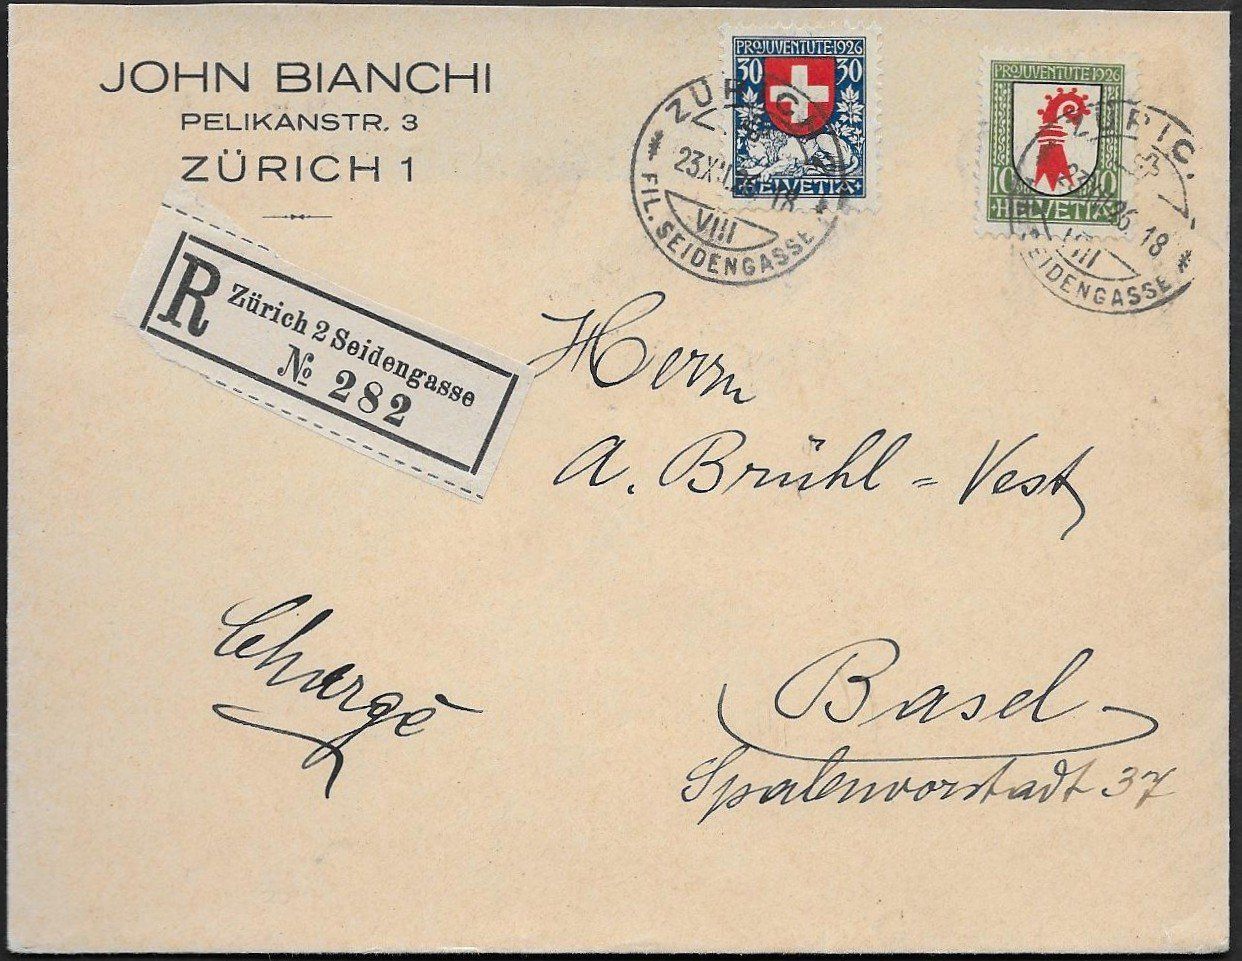 JOHN BIANCHI
PELIKANSTR. 3
ZÜRICH 1
PROJUVENTUTE·1926
30 30
HELVETIA
ZÜRIC
23.XII.26. 18
VIII
FIL. SEIDENGASSE
PROJUVENTUTE 1926
10 10
HELVETIA
RIC
26. 18
VIII
SEIDENGASSE
R Zürich 2 Seidengasse
№ 282
Herrn
A. Brühl = Vest
Chargé
Basel
Spalenvorstadt 37